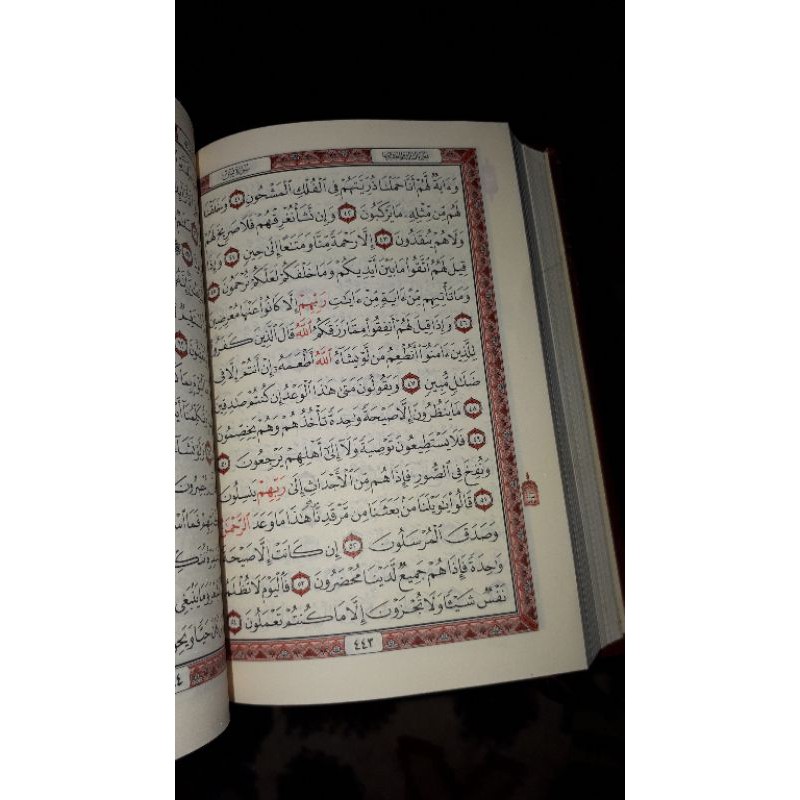 سورة يس
وَءَايَةٌ لَّهُمْ أَنَّا حَمَلْنَا ذُرِّيَّتَهُمْ فِى ٱلْفُلْكِ ٱلْمَشْحُونِ ٤١ وَخَلَقْنَا
لَهُم مِّن مِّثْلِهِۦ مَا يَرْكَبُونَ ٤٢ وَإِن نَّشَأْ نُغْرِقْهُمْ فَلَا صَرِيخَ لَهُمْ
وَلَا هُمْ يُنقَذُونَ ٤٣ إِلَّا رَحْمَةً مِّنَّا وَمَتَٰعًا إِلَىٰ حِينٍ ٤٤ وَإِذَا
قِيلَ لَهُمُ ٱتَّقُوا۟ مَا بَيْنَ أَيْدِيكُمْ وَمَا خَلْفَكُمْ لَعَلَّكُمْ تُرْحَمُونَ ٤٥
وَمَا تَأْتِيهِم مِّنْ ءَايَةٍ مِّنْ ءَايَٰتِ رَبِّهِمْ إِلَّا كَانُوا۟ عَنْهَا مُعْرِضِينَ
٤٦ وَإِذَا قِيلَ لَهُمْ أَنفِقُوا۟ مِمَّا رَزَقَكُمُ ٱللَّهُ قَالَ ٱلَّذِينَ كَفَرُوا۟
لِلَّذِينَ ءَامَنُوٓا۟ أَنُطْعِمُ مَن لَّوْ يَشَآءُ ٱللَّهُ أَطْعَمَهُۥٓ إِنْ أَنتُمْ إِلَّا فِى
ضَلَٰلٍ مُّبِينٍ ٤٧ وَيَقُولُونَ مَتَىٰ هَٰذَا ٱلْوَعْدُ إِن كُنتُمْ صَٰدِقِينَ
٤٨ مَا يَنظُرُونَ إِلَّا صَيْحَةً وَٰحِدَةً تَأْخُذُهُمْ وَهُمْ يَخِصِّمُونَ
٤٩ فَلَا يَسْتَطِيعُونَ تَوْصِيَةً وَلَآ إِلَىٰٓ أَهْلِهِمْ يَرْجِعُونَ ٥٠
وَنُفِخَ فِى ٱلصُّورِ فَإِذَا هُم مِّنَ ٱلْأَجْدَاثِ إِلَىٰ رَبِّهِمْ يَنسِلُونَ
٥١ قَالُوا۟ يَٰوَيْلَنَا مَنۢ بَعَثَنَا مِن مَّرْقَدِنَا هَٰذَا مَا وَعَدَ ٱلرَّحْمَٰنُ
وَصَدَقَ ٱلْمُرْسَلُونَ ٥٢ إِن كَانَتْ إِلَّا صَيْحَةً
وَٰحِدَةً فَإِذَا هُمْ جَمِيعٌ لَّدَيْنَا مُحْضَرُونَ ٥٣ فَٱلْيَوْمَ لَا تُظْلَمُ
نَفْسٌ شَيْـًٔا وَلَا تُجْزَوْنَ إِلَّا مَا كُنتُمْ تَعْمَلُونَ ٥٤
٤٤٣